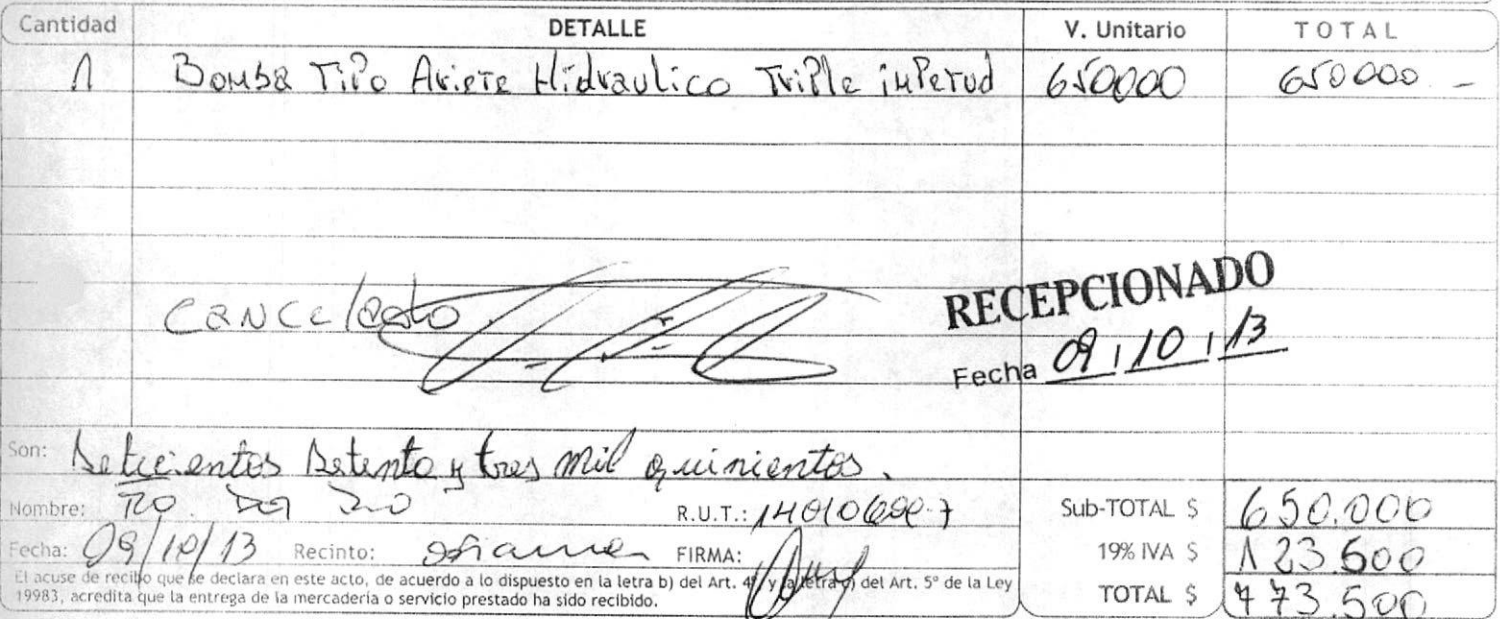 Cantidad DETALLE V. Unitario TOTAL
1 Bomba Tipo Ariete Hidraulico Triple imperud 650000 650000 -
Cancelado
RECEPCIONADO
Fecha 09/10/13
Son: Setecientos Setenta y tres mil quinientos.
Nombre: R.U.T.: Sub-TOTAL $ 650.000
Fecha: 09/10/13 Recinto: FIRMA: 19% IVA $ 123500
El acuse de recibo que se declara en este acto, de acuerdo a lo dispuesto en la letra b) del Art. 4º y la letra c) del Art. 5º de la Ley
19983, acredita que la entrega de la mercadería o servicio prestado ha sido recibido. TOTAL $ 773.500